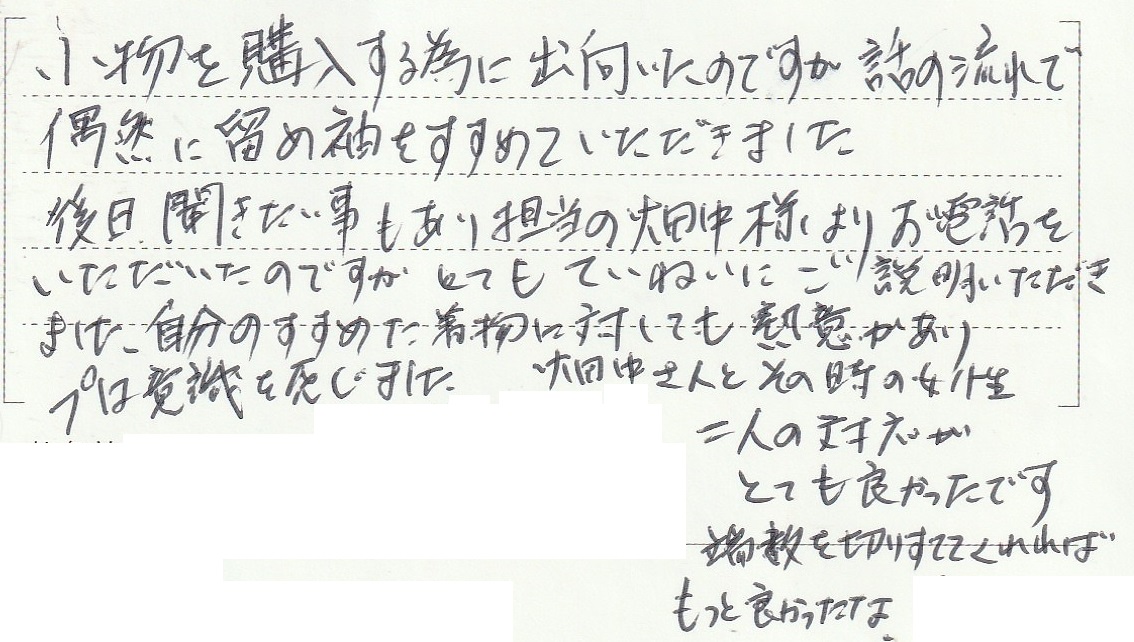 小物を購入する為に出向いたのですが話の流れで
偶然に留め袖をすすめていただきました
後日聞きたい事もあり担当の畑中様よりお電話を
いただいたのですがとてもていねいにご説明いただき
ました、自分のすすめた着物に対しても熱意があり
プロ意識を感じました 畑中さんとその時の女性
二人の対応が
とても良かったです
端数を切りすててくれれば
もっと良かったな